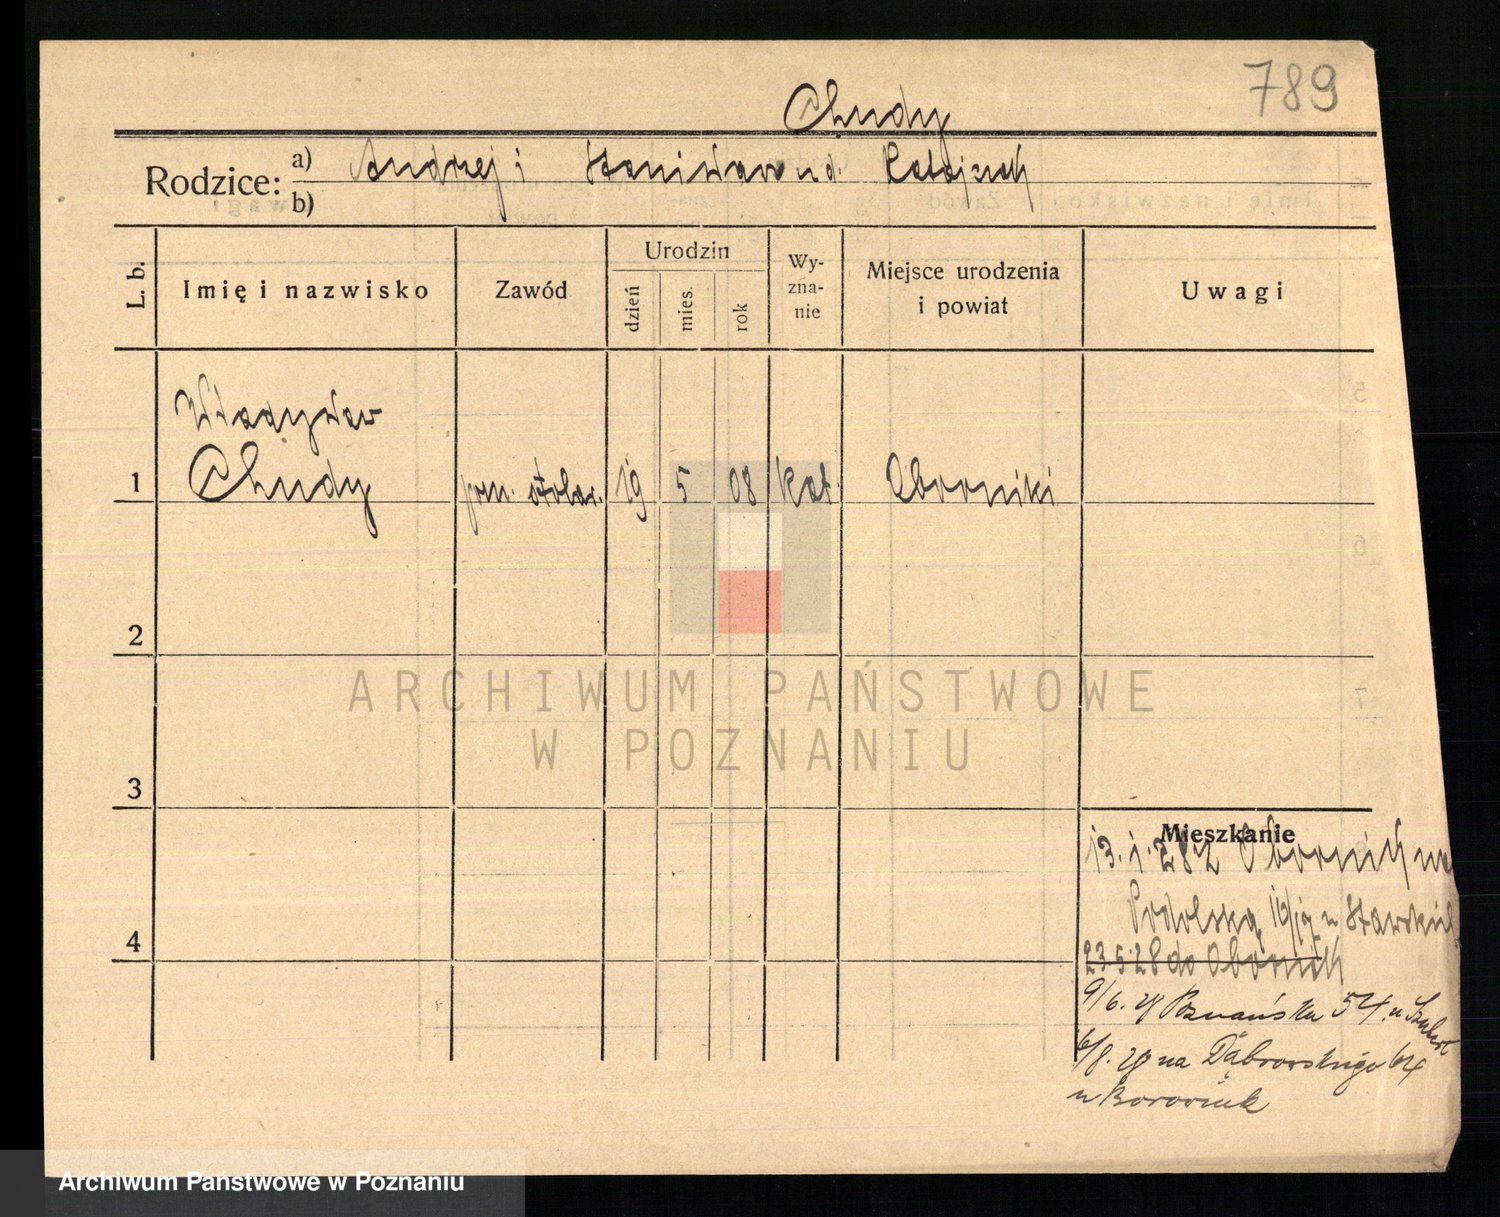 789
Chudy
Rodzice: a) Andrzej i Stanisława ur.
b)
L. b.
Imię i nazwisko
Zawód
Urodzin
dzień
mies.
rok
Wy-
zna-
nie
Miejsce urodzenia
i powiat
Uwagi
Władysław
1 Chudy pom. stolar. 19 5 08 kat. Oborniki
2
3
4
ARCHIWUM PAŃSTWOWE
W POZNANIU
Mieszkanie
13.1.28 z Obornich na
Podolską
23.5.28 do Obornich
9/6. Poznańska 54 u
6/8. 29 na Dąbrowskiego 64
u Borowiak
Archiwum Państwowe w Poznaniu